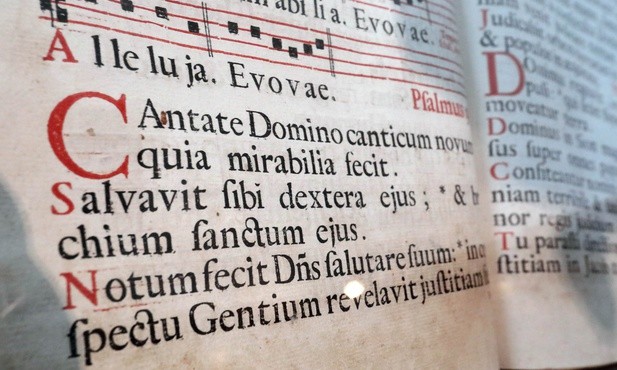 abi li a. Evovae.
Alleluja. Evovae.
Psalmus
CAntate Domino canticum novum
quia mirabilia fecit.
Salvavit sibi dextera ejus; * & br
chium sanctum ejus.
Notum fecit Dñs salutare suum: * in co
spectu Gentium revelavit justitiam
Judic
& popu
DO
moveatur terra.
Dominus in Sion
sus super omnes
Confiteantur
niam terribile
nor regis judicium
Tu parasti
stitiam in Jaco